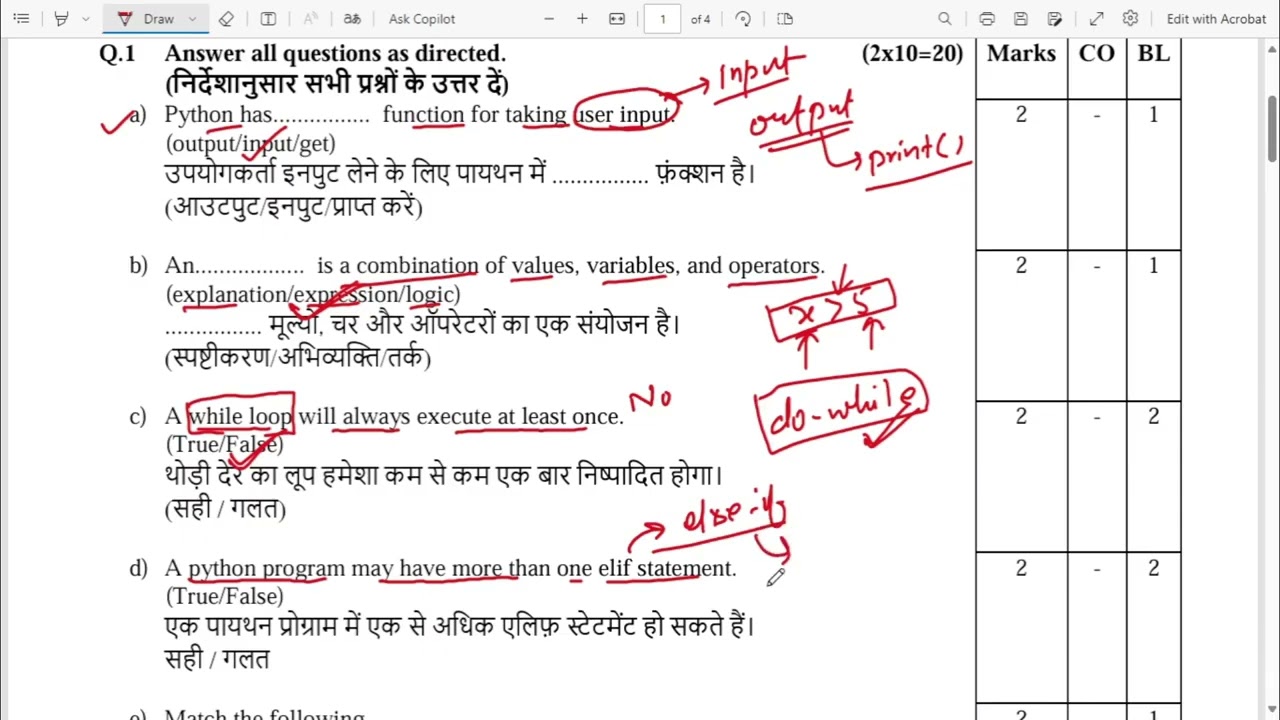 Draw
Ask Copilot
1 of 4
Edit with Acrobat
Q.1 Answer all questions as directed. (2x10=20) Marks CO BL
(निर्देशानुसार सभी प्रश्नों के उत्तर दें)
input
a) Python has................ function for taking user input. 2 - 1
output
(output/input/get)
print()
उपयोगकर्ता इनपुट लेने के लिए पायथन में ................ फ़ंक्शन है।
(आउटपुट/इनपुट/प्राप्त करें)
b) An.................. is a combination of values, variables, and operators. 2 - 1
(explanation/expression/logic)
x > 5
................ मूल्यो, चर और ऑपरेटरों का एक संयोजन है।
(स्पष्टीकरण/अभिव्यक्ति/तर्क)
No
do-while
c) A while loop will always execute at least once. 2 - 2
(True/False)
थोड़ी देर का लूप हमेशा कम से कम एक बार निष्पादित होगा।
(सही / गलत)
else-if
d) A python program may have more than one elif statement. 2 - 2
(True/False)
एक पायथन प्रोग्राम में एक से अधिक एलिफ़ स्टेटमेंट हो सकते हैं।
सही / गलत
e) Match the following 2 1